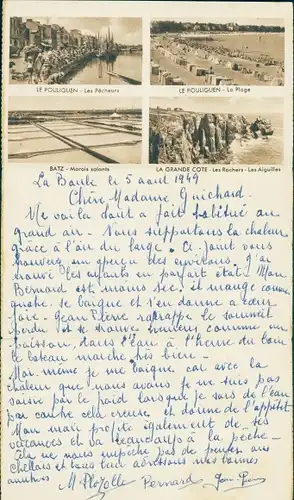 LE POULIGUEN - Les Pêcheurs
LE POULIGUEN - La Plage
BATZ - Marais salants
LA GRANDE COTE - Les Rochers - Les Aiguilles
La Baule le 5 août 1949
Chère Madame Guichard.
Me voilà tout à fait habitué au
grand air - Nous supportons la chaleur
grâce à l'air du large. Ci-joint vous
trouverez un aperçu des environs. J'ai
trouvé les enfants en parfait état. Mon
Bernard est moins sec, il mange comme
quatre, se baigne et s'en donne à cœur
joie. Jean Pierre rattrape le sommeil
perdu et se trouve heureux comme un
poisson dans l'eau à l'heure du bain
le bateau marche très bien -
Moi-même je me baigne car avec la
chaleur que nous avons je ne suis pas
saisie par le froid lorsque je sors de l'eau
par contre cela creuse et donne de l'appétit
Mon mari profite également de ses
vacances et va beaucoup à la pêche -
Cela ne nous empêche pas de penser aux
Chellois et tous deux adressons nos bonnes
amitiés
M Bernard Jean-Pierre